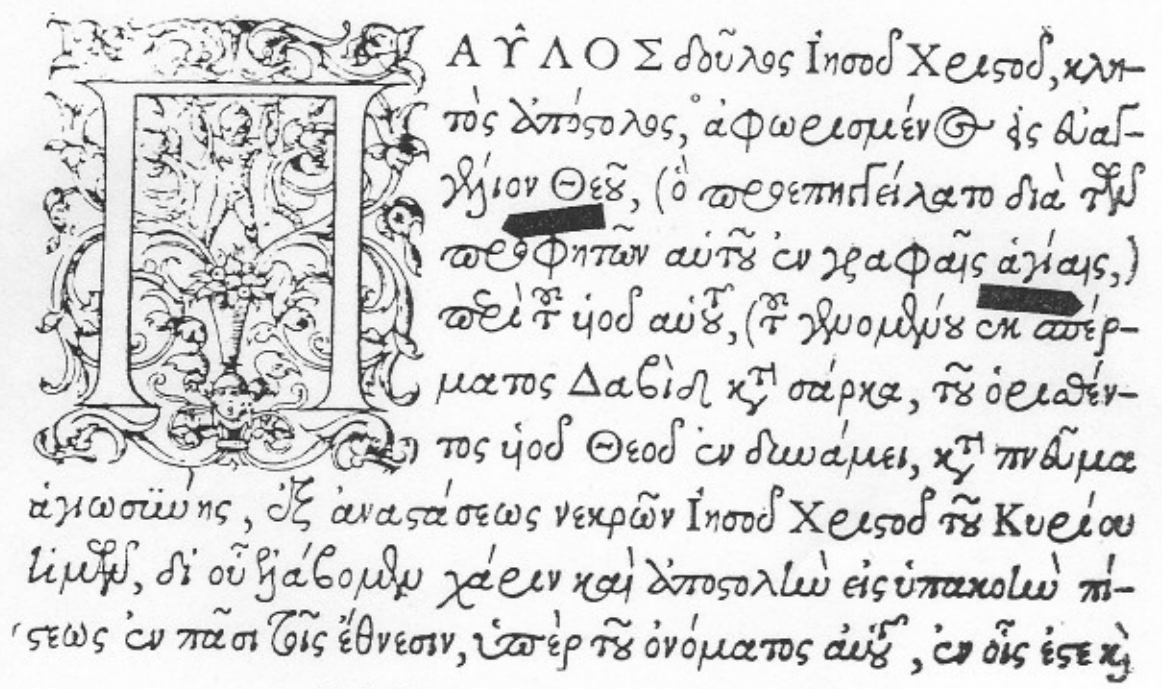 ΠΑΥ͂ΛΟΣ δοῦλος Ἰησοῦ Χριστοῦ, κλη-
τὸς ἀπόστολος, ἀφωρισμένος εἰς εὐαγ-
γέλιον Θεοῦ, (ὃ προεπηγγείλατο διὰ τῶν
προφητῶν αὑτοῦ ἐν γραφαῖς ἁγίαις,)
περὶ τοῦ υἱοῦ αὑτοῦ, (τοῦ γενομένου ἐκ σπέρ-
ματος Δαβὶδ κατὰ σάρκα, τοῦ ὁρισθέν-
τος υἱοῦ Θεοῦ ἐν δυνάμει, κατὰ πνεῦμα
ἁγιωσύνης, ἐξ ἀναστάσεως νεκρῶν Ἰησοῦ Χριστοῦ τοῦ Κυρίου
ἡμῶν, δι οὗ ἐλάβομεν χάριν καὶ ἀποστολὴν εἰς ὑπακοὴν πί-
στεως ἐν πᾶσι τοῖς ἔθνεσιν, ὑπὲρ τοῦ ὀνόματος αὑτοῦ, ἐν οἷς ἐστε καὶ